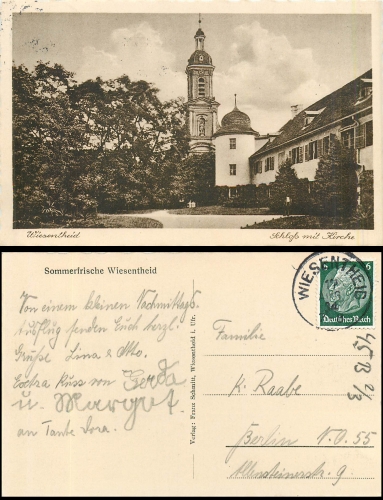 Wiesentheid
Schloß mit Kirche
Sommerfrische Wiesentheid
WIESENTHEID
6 6
Deutsches Reich
Von einem kleinen Nachmittags-
Ausflug senden Euch herzl.
Grüße Lina & Otto.
Extra Kuss von Gerda
u. Margot
an Tante Dora.
Verlag: Franz Schmitt, Wiesentheid i. Ufr.
Familie
K. Raabe
Berlin N.O. 55
Allensteinerstr. 9